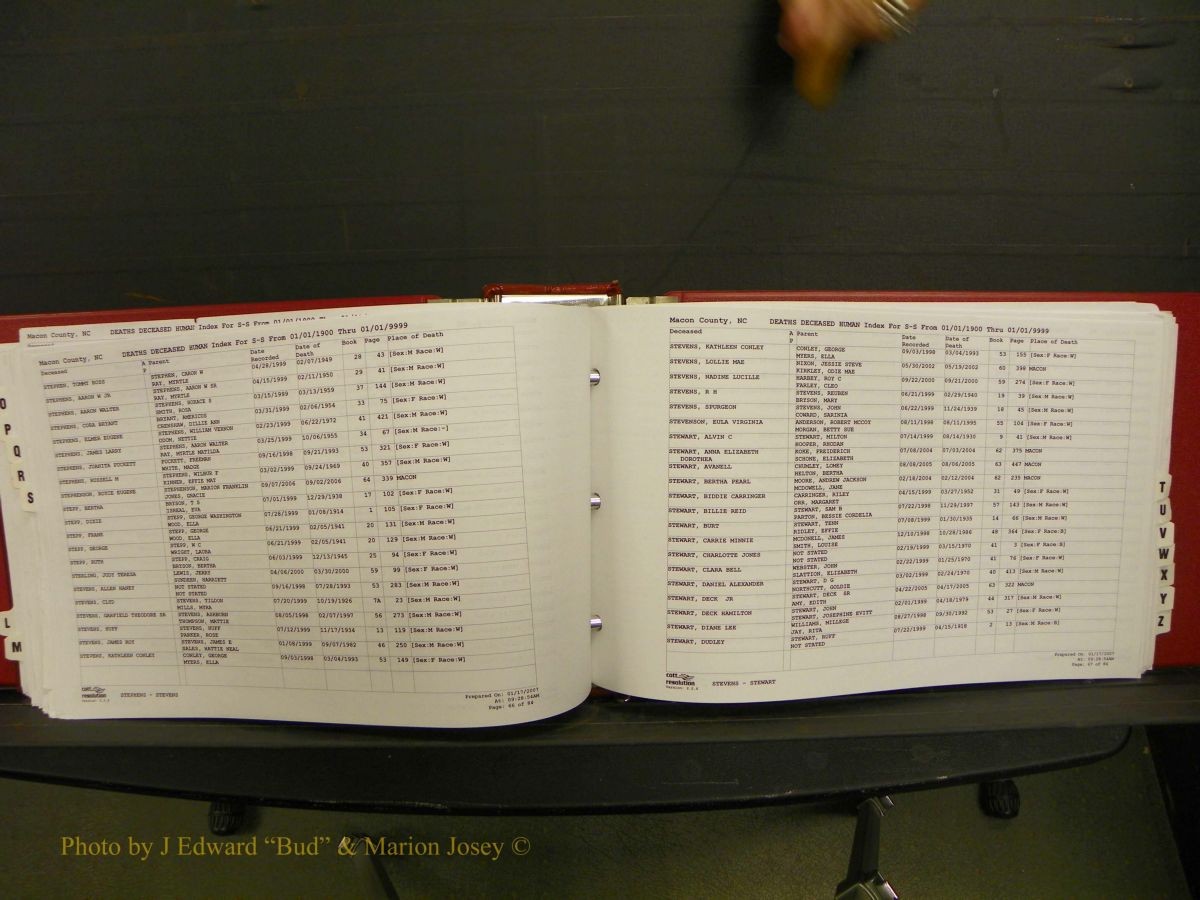 Macon County, NC DEATHS DECEASED HUMAN Index For S-S From 01/01/1900
Macon County, NC DEATHS DECEASED HUMAN Index For S-S From 01/01/1900 Thru 01/01/9999
Deceased A Parent Date Recorded Date of Death Book Page Place of Death
P
STEPHEN, TOMMY ROSS STEPHEN, CARON W 04/28/1999 02/07/1949 28 43 [Sex:M Race:W]
RAY, MYRTLE
STEPHENS, AARON W JR STEPHENS, AARON W SR 04/15/1999 02/11/1950 29 41 [Sex:M Race:W]
RAY, MYRTLE
STEPHENS, AARON WALTER STEPHENS, HORACE S 03/15/1999 03/13/1959 37 144 [Sex:M Race:W]
SMITH, ROSA
STEPHENS, CORA BRYANT BRYANT, AMERICUS 03/31/1999 02/06/1954 33 75 [Sex:F Race:W]
CRENSHAW, DILLIE ANN
STEPHENS, ELMER EUGENE STEPHENS, WILLIAM VERNON 02/23/1999 06/22/1972 41 421 [Sex:M Race:W]
ODOM, NETTIE
STEPHENS, JAMES LARRY STEPHENS, AARON WALTER 03/25/1999 10/06/1955 34 67 [Sex:M Race:-]
RAY, MYRTLE MATILDA
STEPHENS, JUANITA PUCKETT PUCKETT, FREEMAN 09/16/1998 09/21/1993 53 321 [Sex:F Race:W]
WHITE, MADGE
STEPHENS, RUSSELL M STEPHENS, WILBUR F 03/02/1999 09/24/1969 40 357 [Sex:M Race:W]
KINNER, EFFIE MAY
STEPHENSON, ROYCE EUGENE STEPHENSON, MARION FRANKLIN 09/07/2006 09/02/2006 64 339 MACON
JONES, GRACIE
STEPP, BERTHA BRYSON, T S 07/01/1999 12/29/1938 17 102 [Sex:F Race:W]
ISREAL, EVA
STEPP, DIXIE STEPP, GEORGE WASHINGTON 07/26/1999 01/08/1914 1 105 [Sex:F Race:W]
WOOD, ELLA
STEPP, FRANK STEPP, GEORGE 06/21/1999 02/05/1941 20 131 [Sex:M Race:W]
WOOD, ELLA
STEPP, GEORGE STEPP, W C 06/21/1999 02/05/1941 20 129 [Sex:M Race:W]
WRIGHT, LAURA
STEPP, RUTH STEPP, CRAIG 06/03/1999 12/13/1945 25 94 [Sex:F Race:W]
BRYSON, BERTHA
STERLING, JUDY TERESA LEWIS, JERRY 04/06/2000 03/30/2000 59 99 [Sex:F Race:W]
SUNDEEN, HARRIETT
STEVENS, ALLEN HANEY NOT STATED 09/16/1998 07/28/1993 53 283 [Sex:M Race:W]
NOT STATED
STEVENS, CLYD STEVENS, TILDON 07/20/1999 10/19/1926 7A 23 [Sex:M Race:W]
MILLS, MYRA
STEVENS, GARFIELD THEODORE SR STEVENS, ASHBURN 08/05/1998 02/07/1997 56 273 [Sex:M Race:W]
THOMPSON, MATTIE
STEVENS, HUFF STEVENS, HUFF 07/12/1999 11/17/1934 13 119 [Sex:M Race:W]
PARKER, ROSE
STEVENS, JAMES ROY STEVENS, JAMES E 01/08/1999 09/07/1982 46 250 [Sex:M Race:W]
SALES, HATTIE NEAL
STEVENS, KATHLEEN CONLEY CONLEY, GEORGE 09/03/1998 03/04/1993 53 149 [Sex:F Race:W]
MYERS, ELLA
cott resolution
STEPHENS - STEVENS
Prepared On: 01/17/2007
At: 09:28:54AM
Page: 66 of 84
Macon County, NC DEATHS DECEASED HUMAN Index For S-S From 01/01/1900 Thru 01/01/9999
Deceased A Parent Date Recorded Date of Death Book Page Place of Death
P
STEVENS, KATHLEEN CONLEY CONLEY, GEORGE 09/03/1998 03/04/1993 53 155 [Sex:F Race:W]
MYERS, ELLA
STEVENS, LOLLIE MAE NIXON, JESSIE STEVE 05/30/2002 05/19/2002 60 398 MACON
KIRKLEY, ODIE MAE
STEVENS, NADINE LUCILLE HARBEY, ROY C 09/22/2000 09/21/2000 59 274 [Sex:F Race:W]
FARLEY, CLEO
STEVENS, R H STEVENS, REUBEN 06/21/1999 02/29/1940 19 39 [Sex:M Race:W]
BRYSON, MARY
STEVENS, SPURGEON STEVENS, JOHN 06/22/1999 11/24/1939 18 45 [Sex:M Race:W]
COWARD, SARINIA
STEVENSON, EULA VIRGINIA ANDERSON, ROBERT MCCOY 08/11/1998 08/11/1995 55 104 [Sex:F Race:W]
MORGAN, BETTY SUE
STEWART, ALVIN C STEWART, MILTON 07/14/1999 08/14/1930 9 41 [Sex:M Race:W]
HOOPER, RHODAN
STEWART, ANNA ELIZABETH DOROTHEA KOKE, FREIDERICH 07/08/2004 07/03/2004 62 375 MACON
SCHONE, ELIZABETH
STEWART, AVANELL CRUMLEY, LOMEY 08/08/2005 08/06/2005 63 447 MACON
HELTON, BERTHA
STEWART, BERTHA PEARL MOORE, ANDREW JACKSON 02/18/2004 02/12/2004 62 235 MACON
MCDOWELL, JANE
STEWART, BIDDIE CARRINGER CARRINGER, RILEY 04/15/1999 03/27/1952 31 49 [Sex:F Race:W]
ORR, MARGARET
STEWART, BILLIE REID STEWART, SAM B 07/22/1998 11/29/1997 57 143 [Sex:M Race:W]
PARTON, BESSIE CORDELIA
STEWART, BURT STEWART, TENN 07/08/1999 01/30/1935 14 66 [Sex:M Race:W]
RIDLEY, EFFIE
STEWART, CARRIE MINNIE MCDONELL, JAMES 12/10/1998 10/28/1986 48 364 [Sex:F Race:B]
SMITH, LOUISE
STEWART, CHARLOTTE JONES NOT STATED 02/19/1999 03/15/1970 41 3 [Sex:F Race:B]
NOT STATED
STEWART, CLARA BELL WEBSTER, JOHN 02/22/1999 01/25/1970 41 76 [Sex:F Race:W]
SLATTION, ELIZABETH
STEWART, DANIEL ALEXANDER STEWART, D G 03/02/1999 02/24/1970 40 413 [Sex:M Race:W]
NORTHCUTT, GOLDIE
STEWART, DECK JR STEWART, DECK SR 04/22/2005 04/17/2005 63 322 MACON
AMY, EDITH
STEWART, DECK HAMILTON STEWART, JOHN 02/01/1999 04/18/1979 44 317 [Sex:M Race:W]
STEWART, JOSEPHINE EVITT
STEWART, DIANE LEE WILLIAMS, MILLEGE 08/27/1998 09/30/1992 53 27 [Sex:F Race:W]
JAY, RITA
STEWART, DUDLEY STEWART, RUFF 07/22/1999 04/15/1918 2 13 [Sex:M Race:B]
NOT STATED
cott resolution
STEVENS - STEWART
Prepared On: 01/17/2007
At: 09:28:54AM
Page: 67 of 84
O
P
Q
R
S
L
M
T
U
V
W
X
Y
Z
Photo by J Edward “Bud” & Marion Josey ©